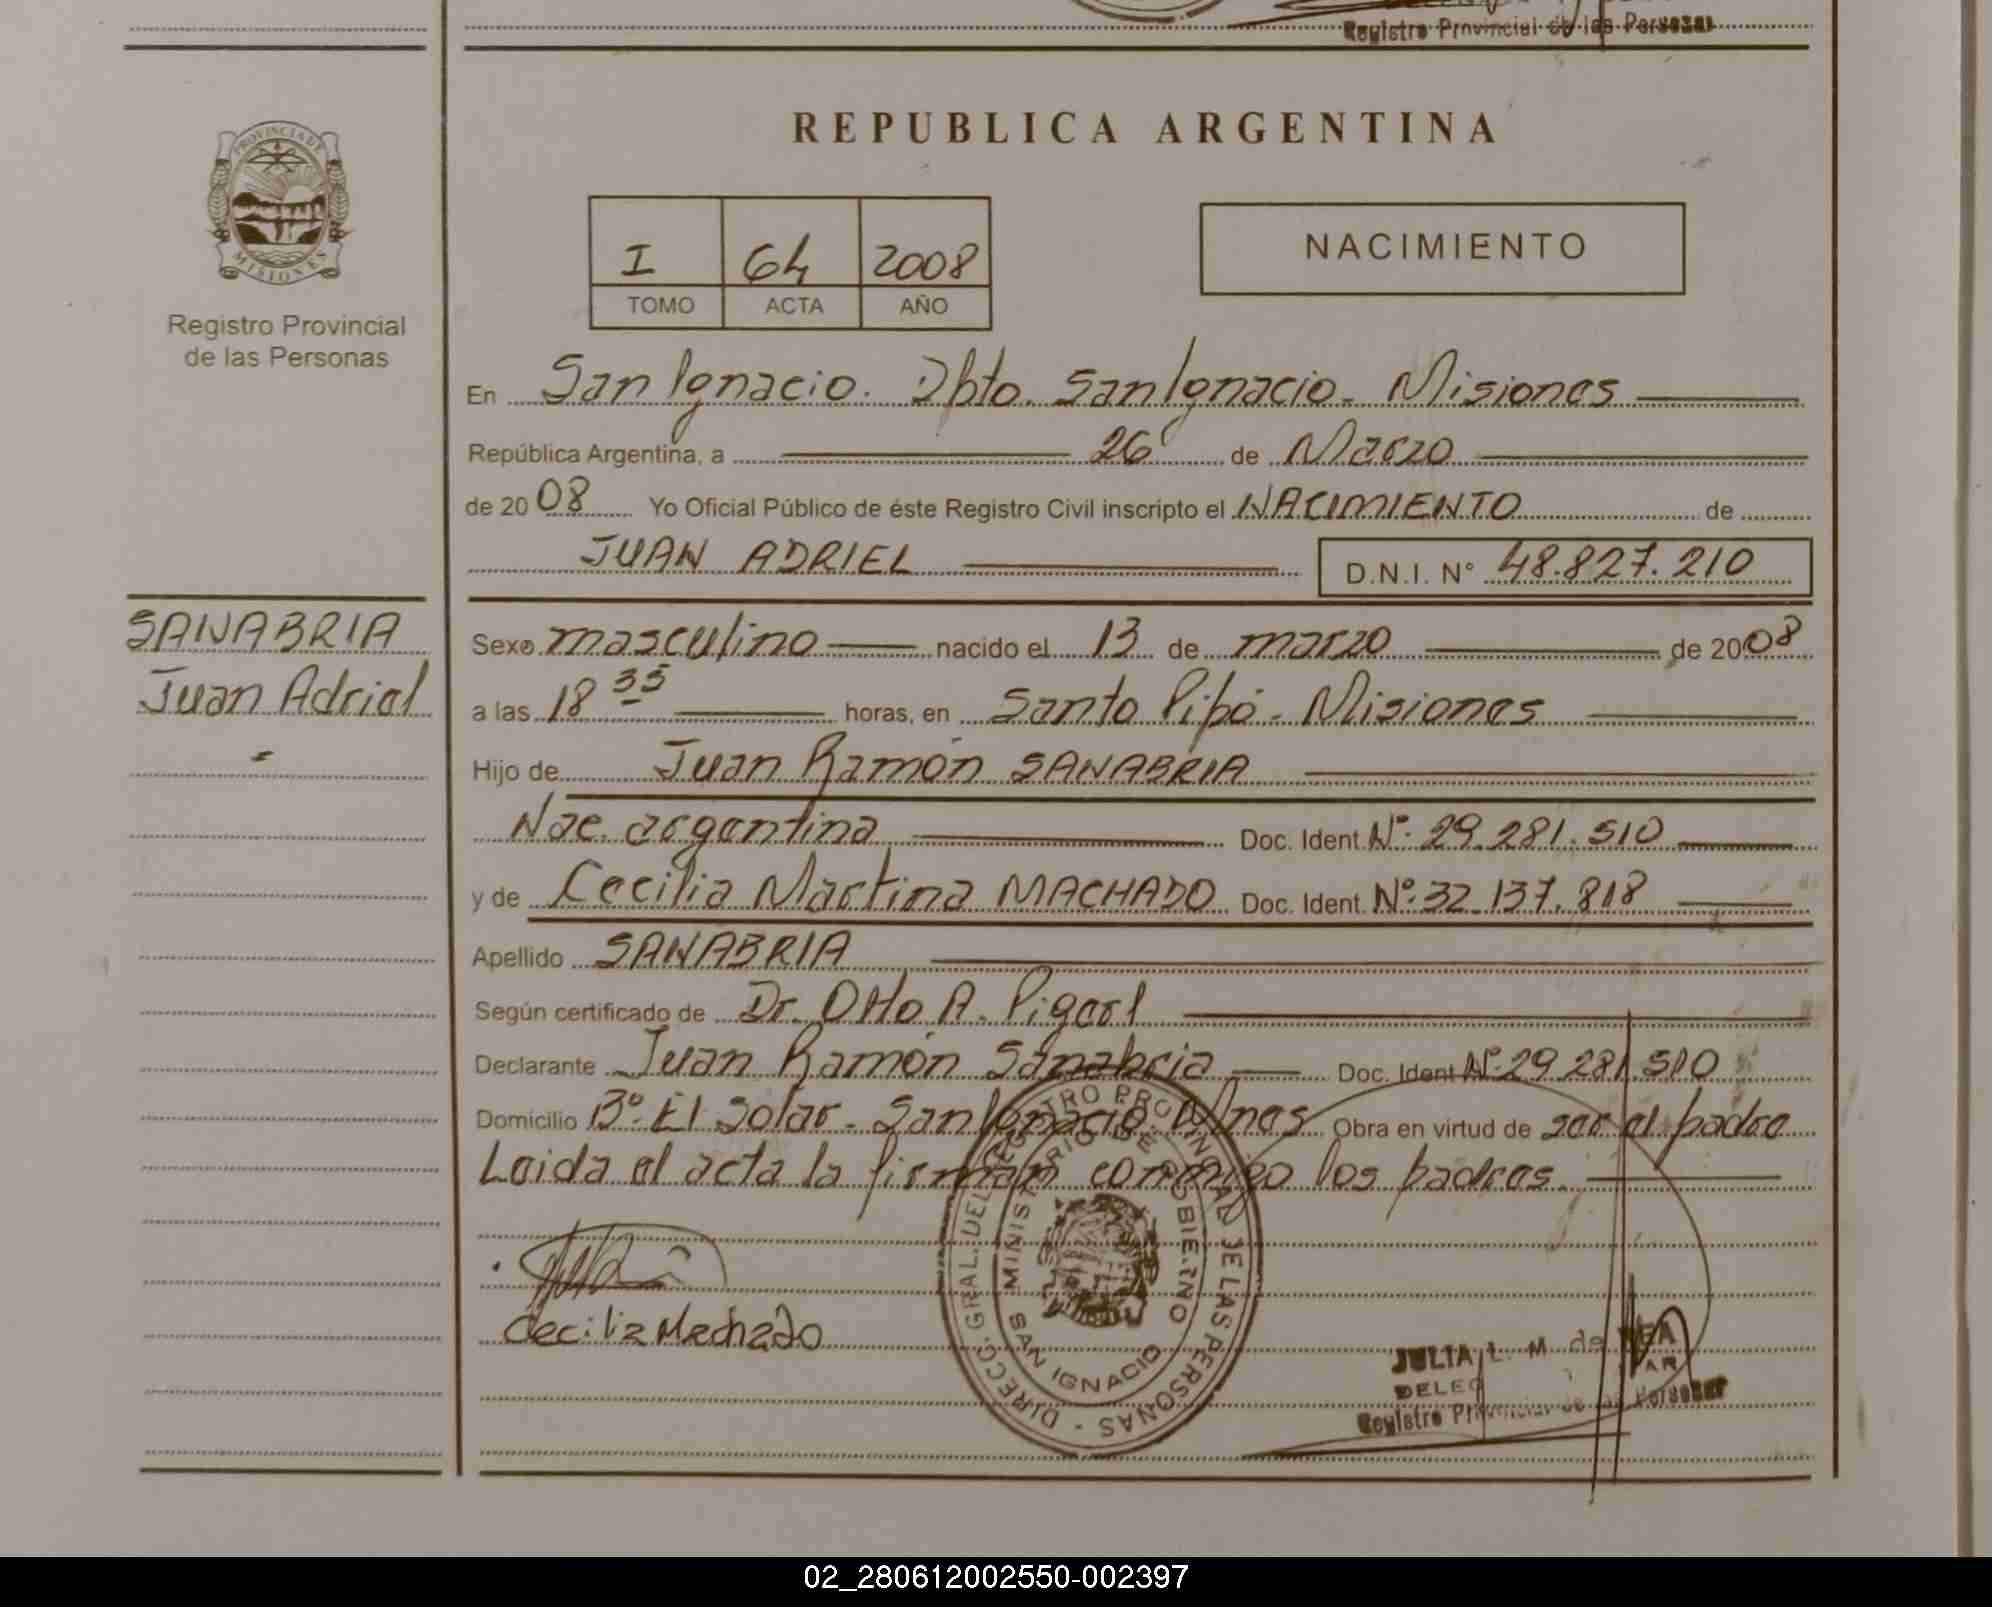 Registro Provincial de las Personas
REPUBLICA ARGENTINA
PROVINCIA DE
MISIONES
Registro Provincial
de las Personas
I 64 2008
TOMO ACTA AÑO
NACIMIENTO
En San Ignacio. Dpto. San Ignacio. Misiones
República Argentina, a 26 de Marzo
de 2008 Yo Oficial Público de éste Registro Civil inscripto el NACIMIENTO de
JUAN ADRIEL D.N.I. N° 48.827.210
SANABRIA
Juan Adriel
Sexo masculino nacido el 13 de marzo de 2008
a las 18 35 horas, en Santo Pipó - Misiones
Hijo de Juan Ramón SANABRIA
Nac. argentina Doc. Ident. N°. 29.281.510
y de Cecilia Martina MACHADO Doc. Ident. N°. 32.137.818
Apellido SANABRIA
Según certificado de Dr. Otto A.
Declarante Juan Ramón Sanabria Doc. Ident N°. 29.281.510
Domicilio B° El Solar - San Ignacio. Mnes Obra en virtud de ser el padre
Leida el acta la firman conmigo los padres.
Cecilia Machado
DIRECC. GRAL. DEL REGISTRO PROVINCIAL DE LAS PERSONAS -
MINISTERIO DE GOBIERNO
SAN IGNACIO
JULIA L. M. de
Registro Provincial de las Personas
02_280612002550-002397